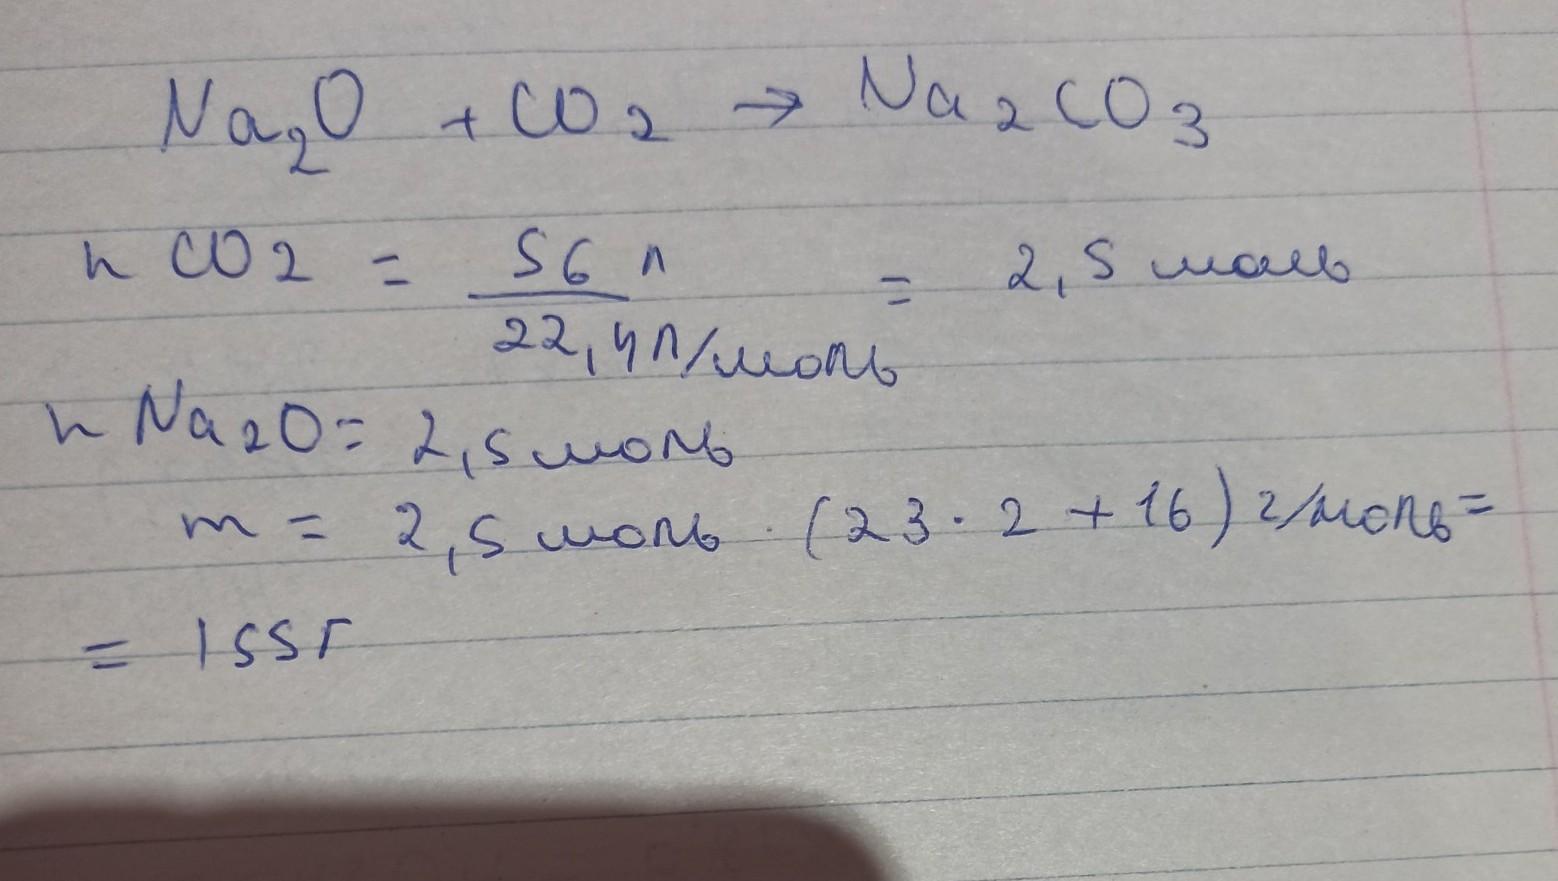 Na₂O + CO₂ → Na₂CO₃
n CO2 = 56 л / 22,4 л/моль = 2,5 моль
n Na₂O = 2,5 моль
m = 2,5 моль · (23 · 2 + 16) г/моль =
= 155 г